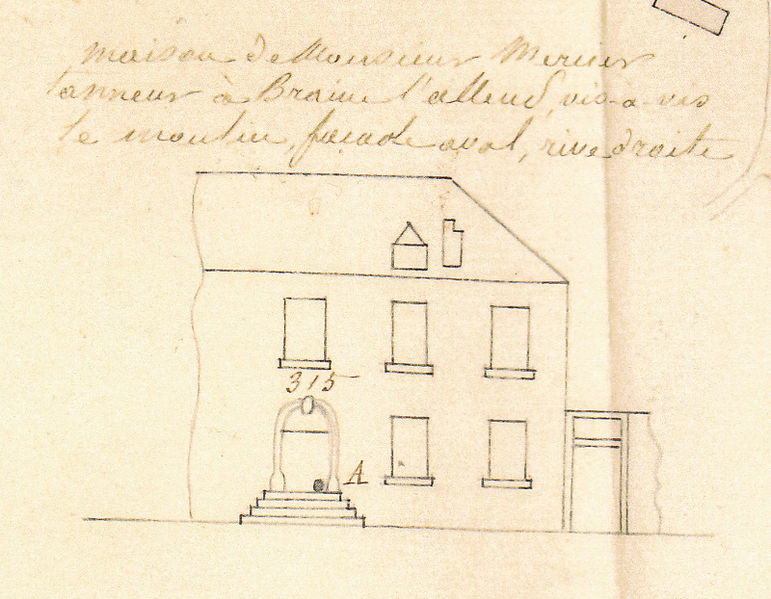 maison de Monsieur Mercier
tanneur à Braine l'alleud, vis-a-vis
le moulin, façade aval, rive droite
315
A